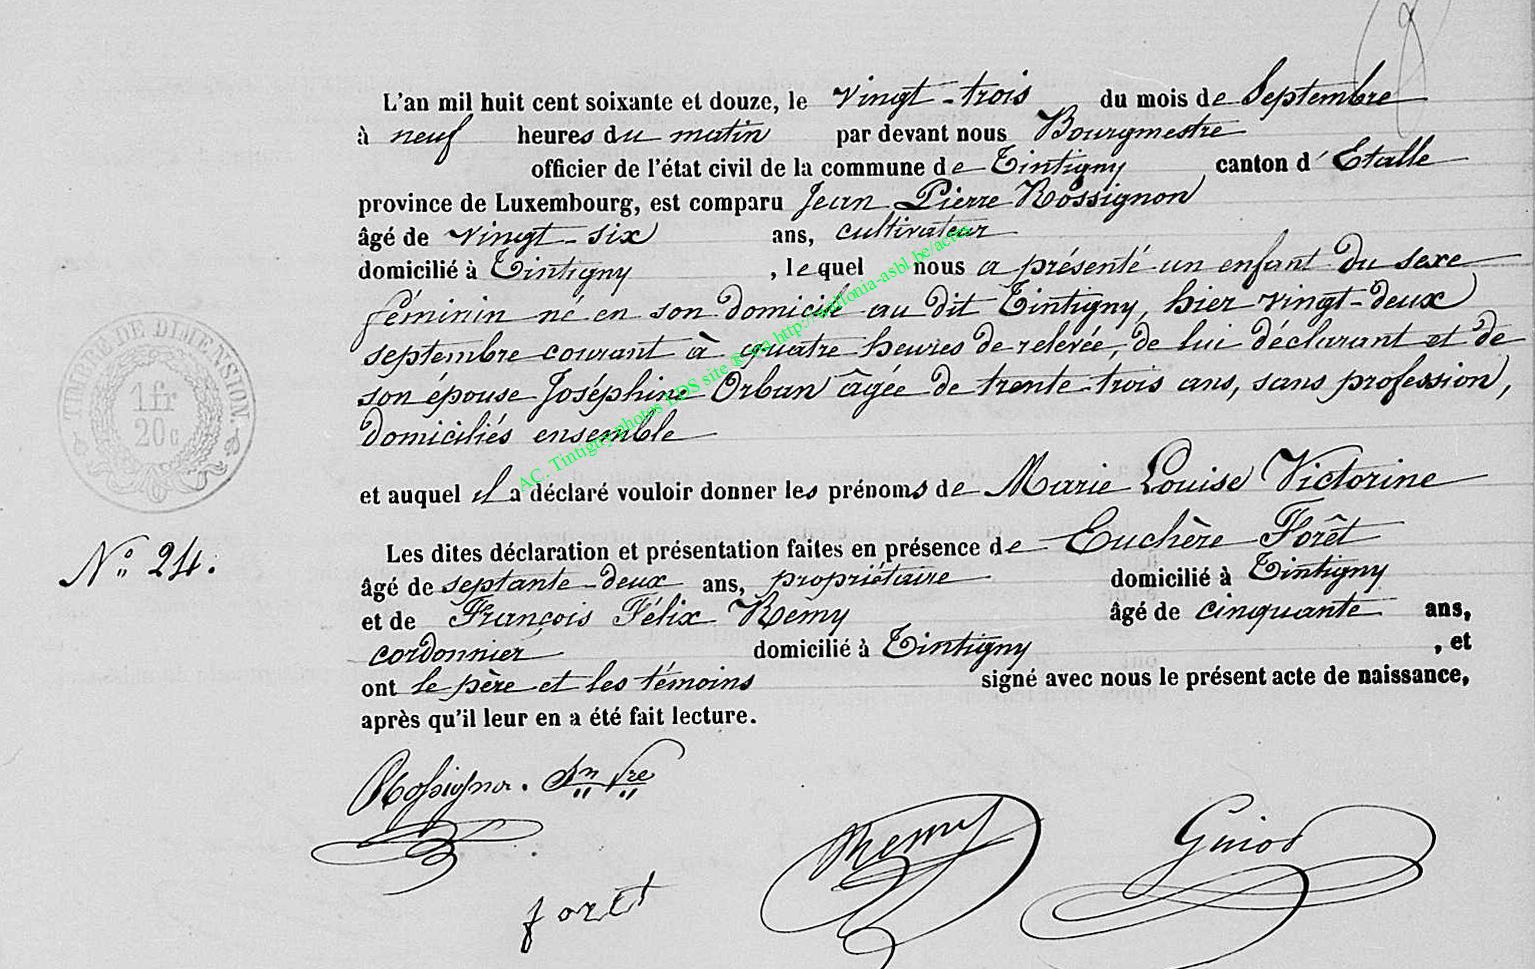 L'an mil huit cent soixante et douze, le vingt-trois du mois de Septembre
à neuf heures du matin par devant nous Bourgmestre
officier de l'état civil de la commune de Tintigny, canton d'Etalle
province de Luxembourg, est comparu Jean Pierre Rossignon
âgé de vingt-six ans, cultivateur
domicilié à Tintigny, lequel nous a présenté un enfant du sexe
féminin né en son domicile au dit Tintigny, hier vingt-deux
septembre courant à quatre heures de relevée, de lui déclarant et de
son épouse Joséphine Orban âgée de trente-trois ans, sans profession,
domiciliés ensemble
et auquel il a déclaré vouloir donner les prénoms de Marie Louise Victorine
Les dites déclaration et présentation faites en présence de Euchère Forêt
âgé de septante-deux ans, propriétaire domicilié à Tintigny
et de François Félix Remy âgé de cinquante ans,
cordonnier domicilié à Tintigny, et
ont le père et les témoins signé avec nous le présent acte de naissance,
après qu'il leur en a été fait lecture.
N° 24.
TIMBRE DE DIMENSION.
1fr
20c
Rossignon. Jn Pre
foret
Remy
Guiot
AC. Tintigny photos LDS site @ on http://wallonia-asbl.be/actes